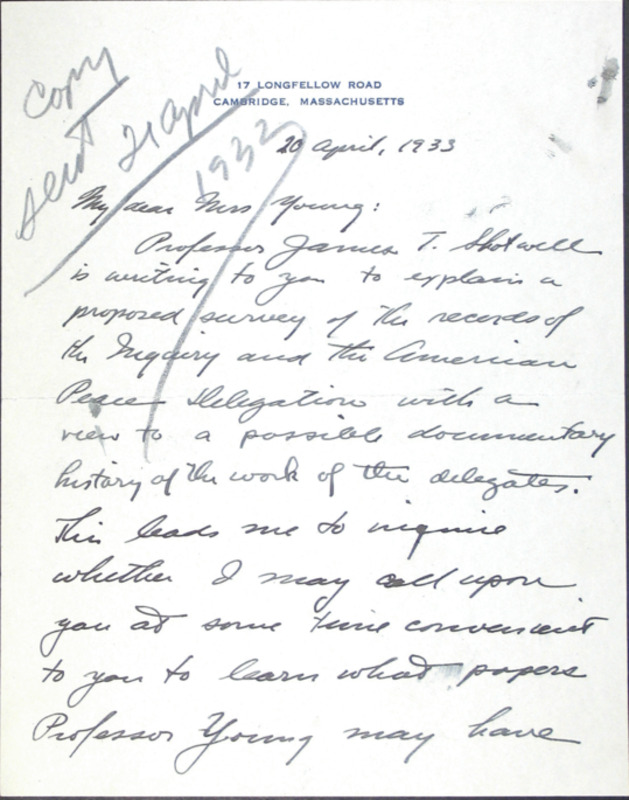 Copy
sent 21 April
1933
17 LONGFELLOW ROAD
CAMBRIDGE, MASSACHUSETTS
20 April, 1933
My dear Mrs Young:
Professor James T. Shotwell
is writing to you to explain a
proposed survey of the records of
the Inquiry and the American
Peace Delegation with a
view to a possible documentary
history of the work of the delegates.
This leads me to inquire
whether I may call upon
you at some time convenient
to you to learn what papers
Professor Young may have